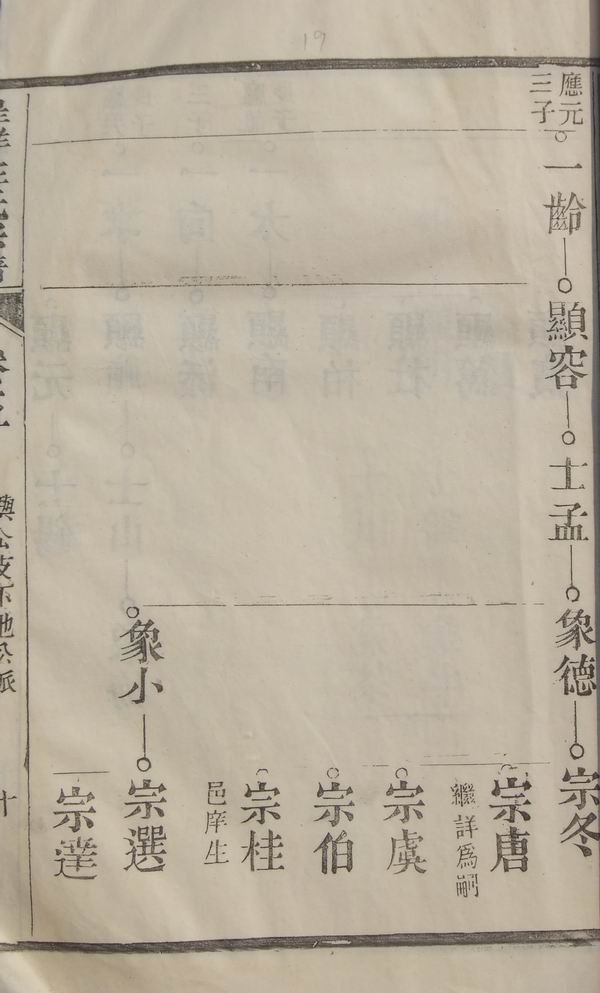 19
應元
三子
一齡
顯容
士孟
象德
宗冬
宗唐
繼詳爲嗣
宗虞
宗伯
宗桂
邑庠生
象小
宗選
宗達
十